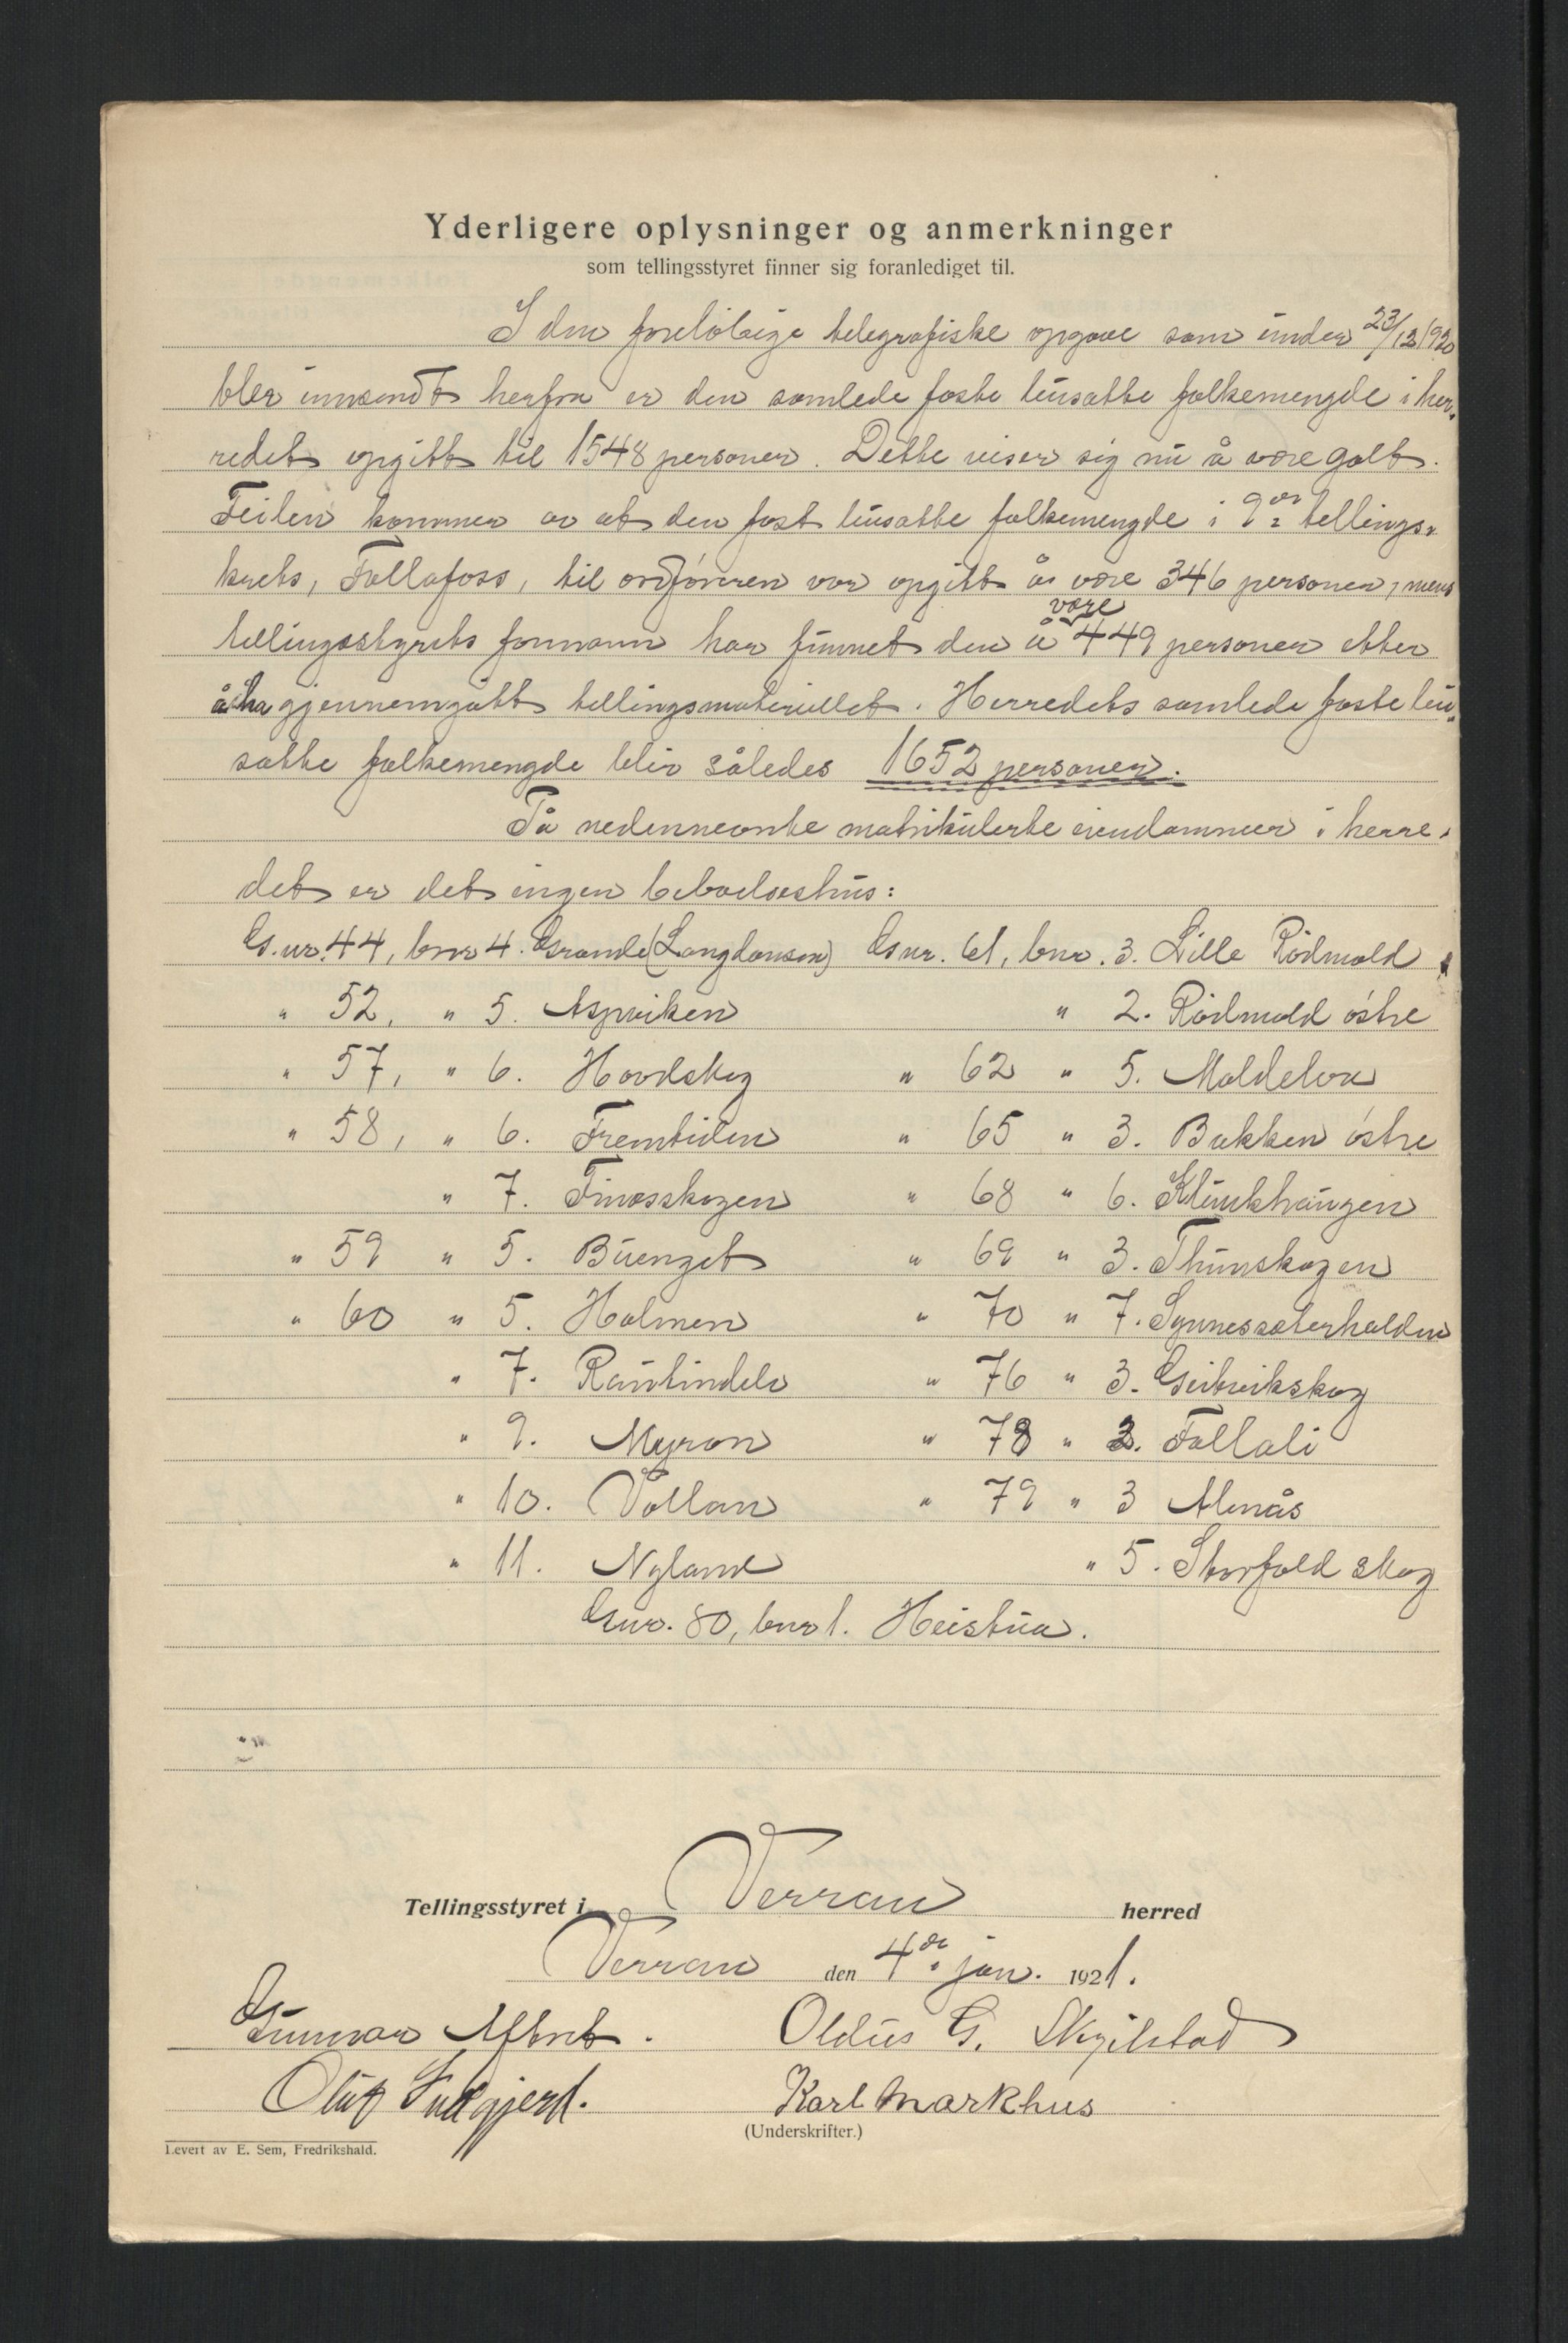 Yderligere oplysninger og anmerkninger
som tellingsstyret finner sig foranlediget til.
I den foreløbige telegrafiske opgave som under 23/12 1920
blev innsendt herfra er den samlede faste husatte folkemengde i her-
redet opgitt til 1548 personer. Dette viser sig nu å være galt.
Feilen kommer av at den fast husatte folkemengde i 9de tellings-
krets, Follafoss, til ordføreren var opgitt å være 346 personer, mens
tellingsstyrets formann har funnet den å være 449 personer etter
å ha gjennemgått tellingsmateriellet. Herredets samlede faste hu-
satte folkemengde blir således 1652 personer.
På nedennevnte matrikulerte eiendommer i herre-
det er det ingen beboelseshus:
G.nr. 44, bnr 4. Grande (Langdansen) Gnr. 61, bnr. 3. Lille Rödmold
" 52, " 5. Aspviken " 2. Rödmold östre
" 57, " 6. Hovdskog " 62 " 5. Moldelva
" 58, " 6. Fremtiden " 65 " 3. Bakken östre
" 7. Finesskogen " 68 " 6. Klinkhaugen
" 59 " 5. Buenget " 69 " 3. Thunskogen
" 60 " 5. Holmen " 70 " 7. Synnessæterhalden
" 7. Rauhindele " 76 " 3. Geitvikskog
" 9. Myron " 78 " 2. Follali
" 10. Vollan " 79 " 3 Alenås
" 11. Nyland " 5. Storfold skog
Gnr. 80, bnr 1. Heistua.
Tellingsstyret i Verran herred
Verran den 4de jan. 1921.
Gunnar Aftret. Oldus G. Skjelstad
Oluf Tuegjerd. Karl Markhus
(Underskrifter.)
Levert av E. Sem, Fredrikshald.